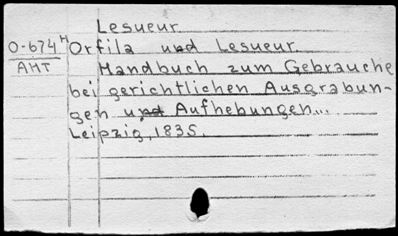 Lesueur.
O-674н Orfila und Lesueur.
АНТ Handbuch zum Gebrauche
bei gerichtlichen Ausgrabun-
gen und Aufhebungen...
Leipzig, 1835.